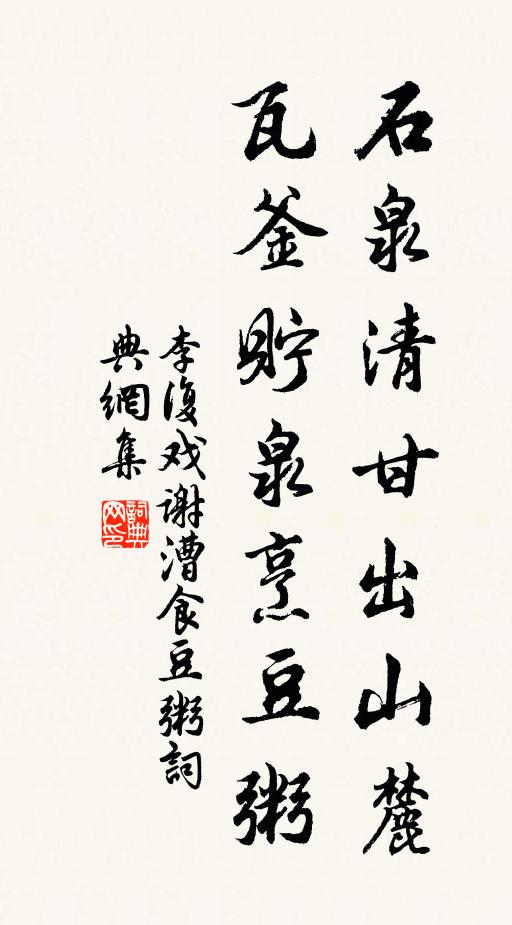 石泉清甘出山麓
瓦釜貯泉烹豆粥
李復戏谢漕食豆粥詞
典網集
詞典
网印